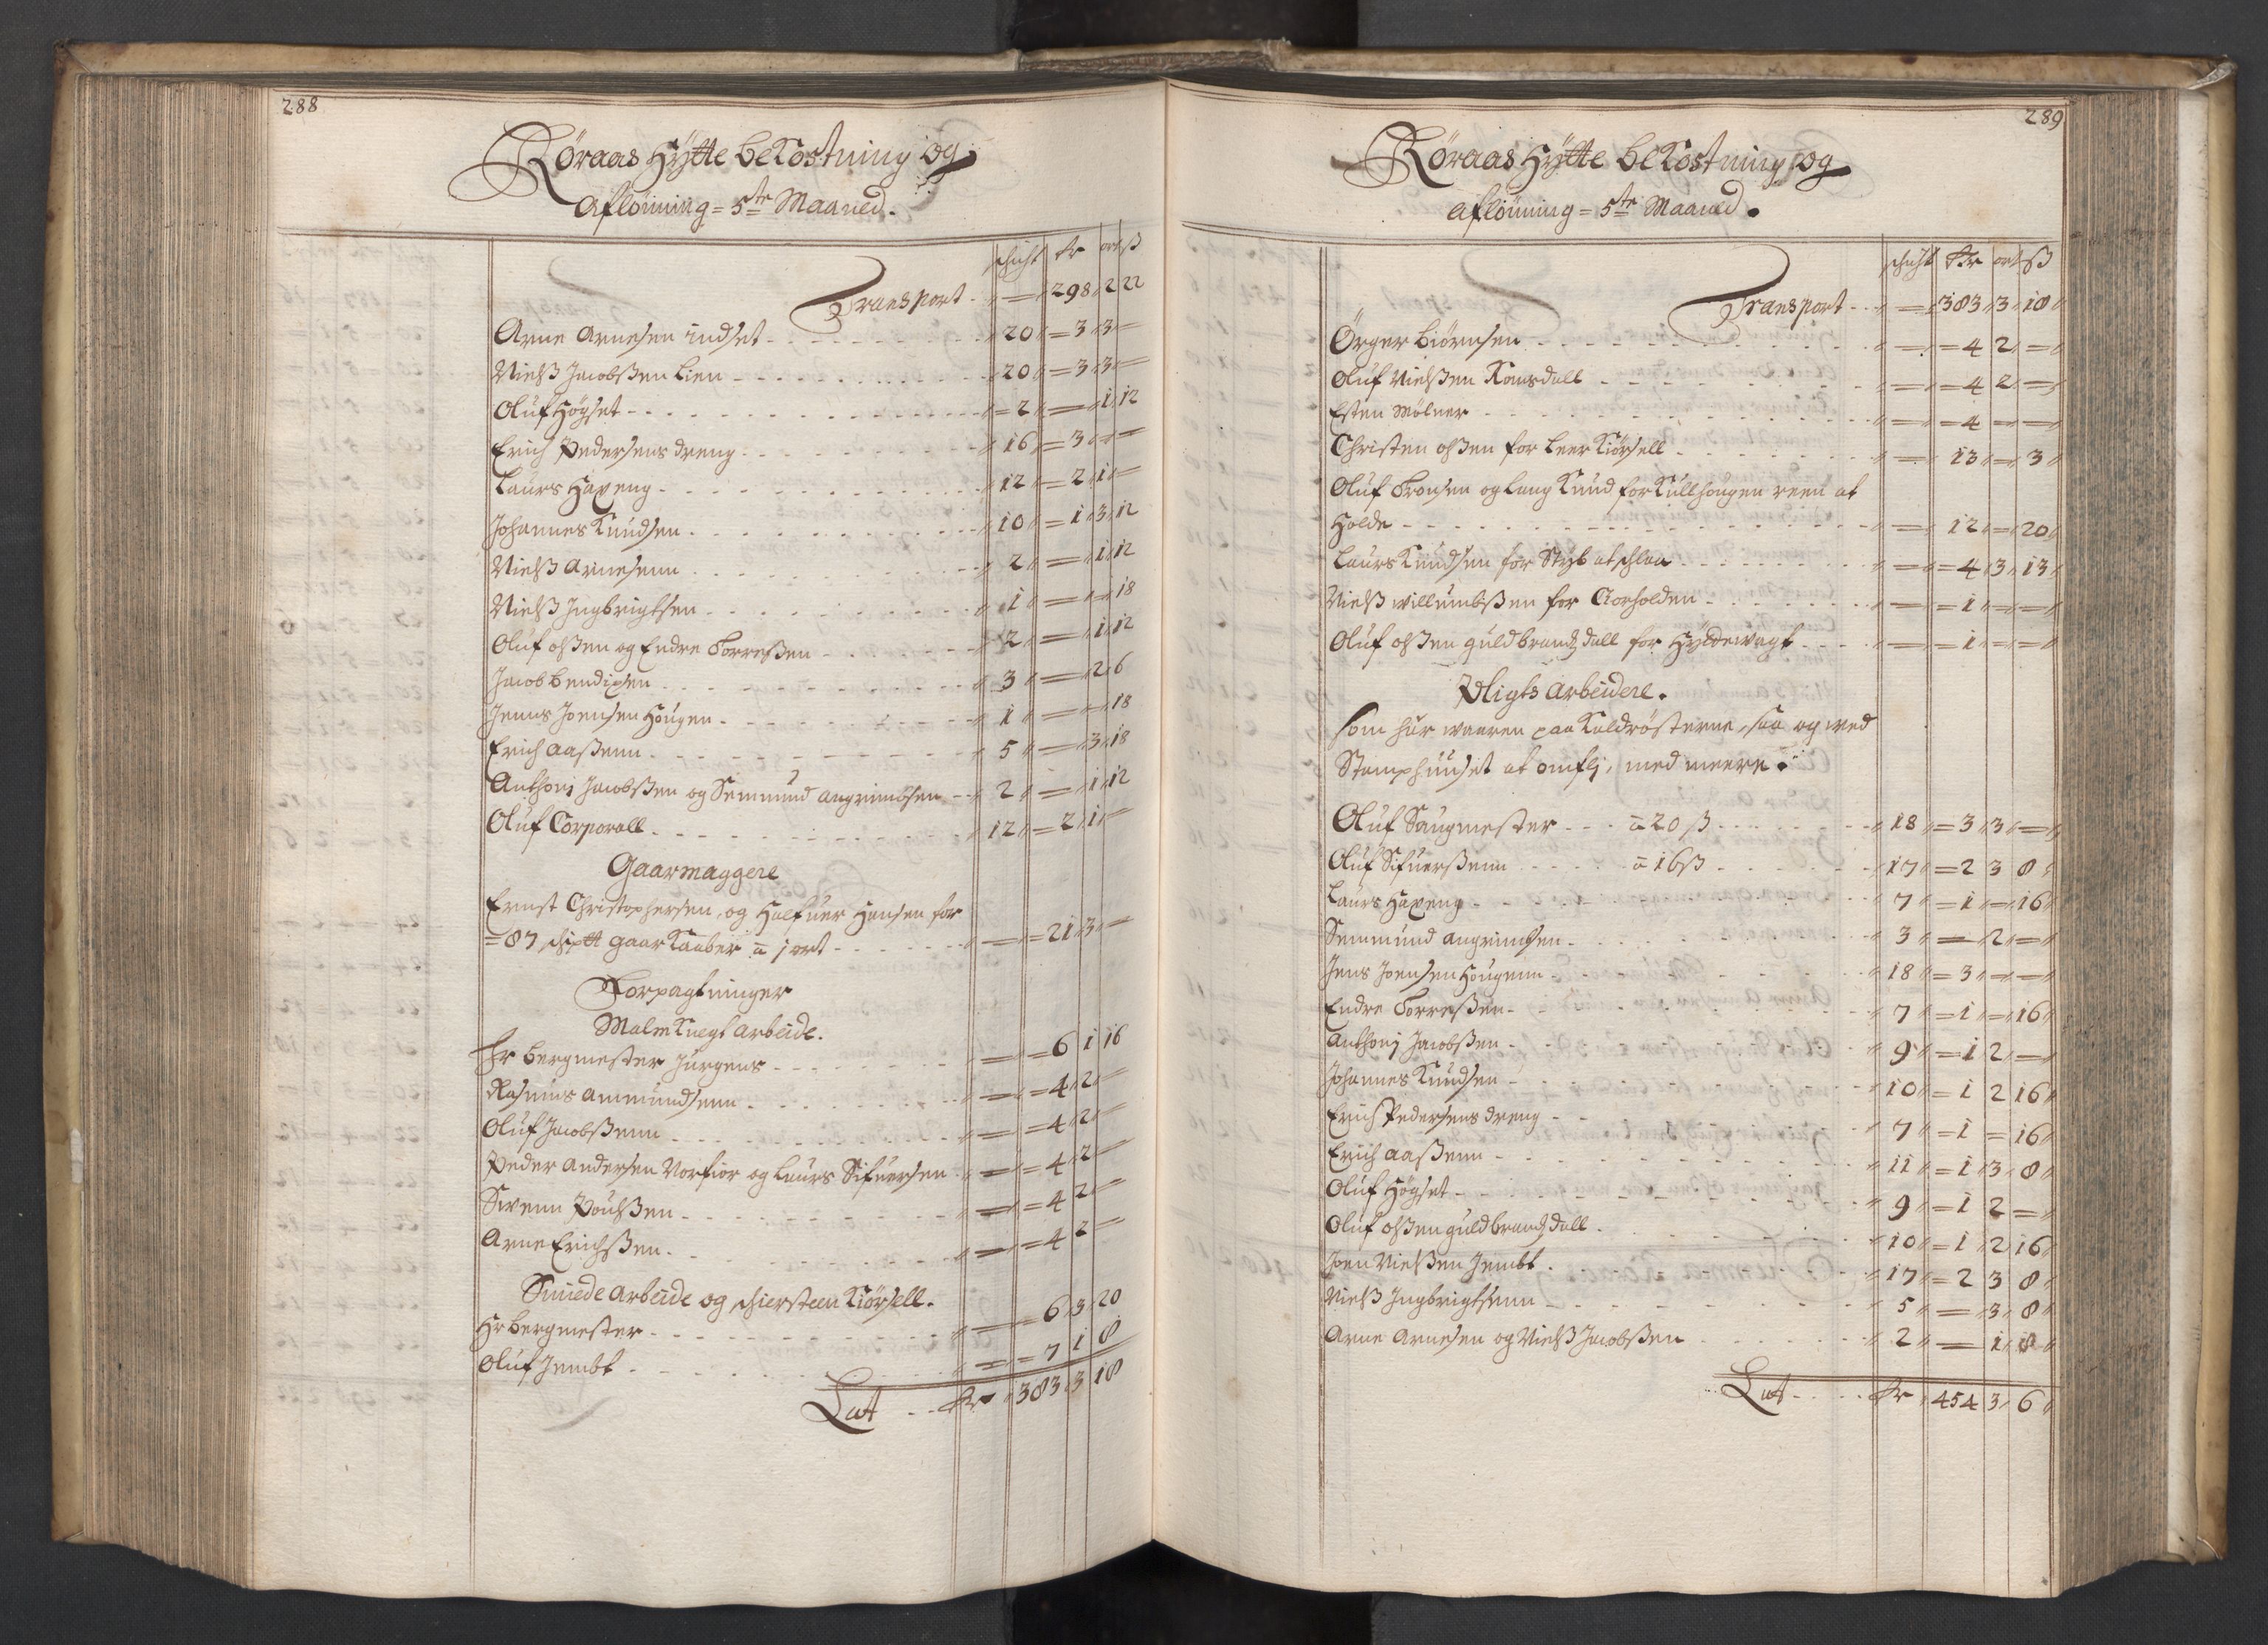 288
Röraas Hÿtte beKostning og
Aflönning = 5te Maaned.
schicht Rr ort ß
Transport - 298 2 22
Arne Arnesen indset - 20 3 3
Nielß Jacobßen Lien - 20 3 3
Oluf Högset - 2 1 12
Erich Pedersens dreng - 16 3
Laurs Haxeng - 12 2 1
Johannes Knudsen - 10 1 3 12
Nielß Arnesenn - 2 1 12
Nielß Ingbrigtsen - 1 18
Oluf olßen og Endre Torreßen - 2 1 12
Jacob bendixen - 3 2 6
Jenns Joensen Hougen - 1 18
Erich aaßenn - 5 3 18
Anthonj Jacobßen og Semmund angrimösen - 2 1 12
Oluf Corporall - 12 2 1
Gaarmaggere
Ernst Christophersen, og Halfuer Hansen for
= 87 schptt gaar Kaaber a 1 ort - 21 3
Forpagtninger
Malm Knegt Arbeide.
Hr bergmester Jurgens - 6 1 16
Rasmus ammundsenn - 4 2
Oluf Jacobßenn - 4 2
Peder Andersen Norfior og Laurs Sifuersen - 4 2
Swenn Poulßen - 4 2
Arne Erichßen - 4 2
Smede Arbeide og schiersteen Kiörsell.
Hr bergmester - 6 3 20
Oluf Jembt - 7 1 8
Lat - Rr 383 3 18
289
Röraas Hÿtte beKostning og
aflönning = 5te Maaned.
schicht Rr ort ß
Transport - 383 3 18
Örger biörnsen - 4 2
Oluf Nielßen Romsdall - 4 2
Esten Mölner - 4
Christen olßen for Leer Kiörsell - 13 3
Oluf Tronsen og Lang Knud for Kullhougen reen at
Holde - 12 20
Laurs Knudsen for Stÿb at schlaa - 4 3 13
Nielß willumbßen for Clorholden - 1
Oluf olßen guldbrandtzdall for Hÿttewagt - 1
Pligts Arbeidere.
Som har waaren paa Kaldrösterne, saa og wed
Stamphuuset at omflÿ, med meere.
Oluf Saugmester - a 20 ß - 18 3 3
Oluf Sifuerßenn - a 16 ß - 17 2 3 8
Laurs Haxeng - 7 1 16
Semmund angrimbsen - 3 2
Jens Joensen Hougenn - 18 3
Endre Torreßen - 7 1 16
Anthonj Jacobßen - 9 1 2
Johannes Knudsen - 10 1 2 16
Erich Pedersens dreng - 7 1 16
Erich aaßenn - 11 1 3 8
Oluf Högset - 9 1 2
Oluf olßen guldbrandtzdall - 10 1 2 16
Joen Nielßen Jembt - 17 2 3 8
Nielß Ingbrigtsenn - 5 3 8
Arne Arnesen og Nielß Jacobßen - 2 1 8
Lat - Rr 454 3 6